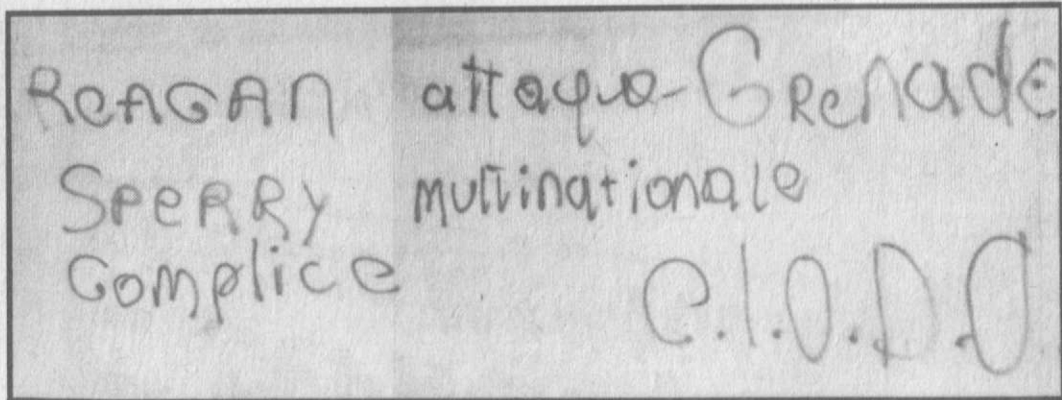 ReAGAN attaque Grenade
SPeRRy multinationale
Complice
C.I.O.D.O